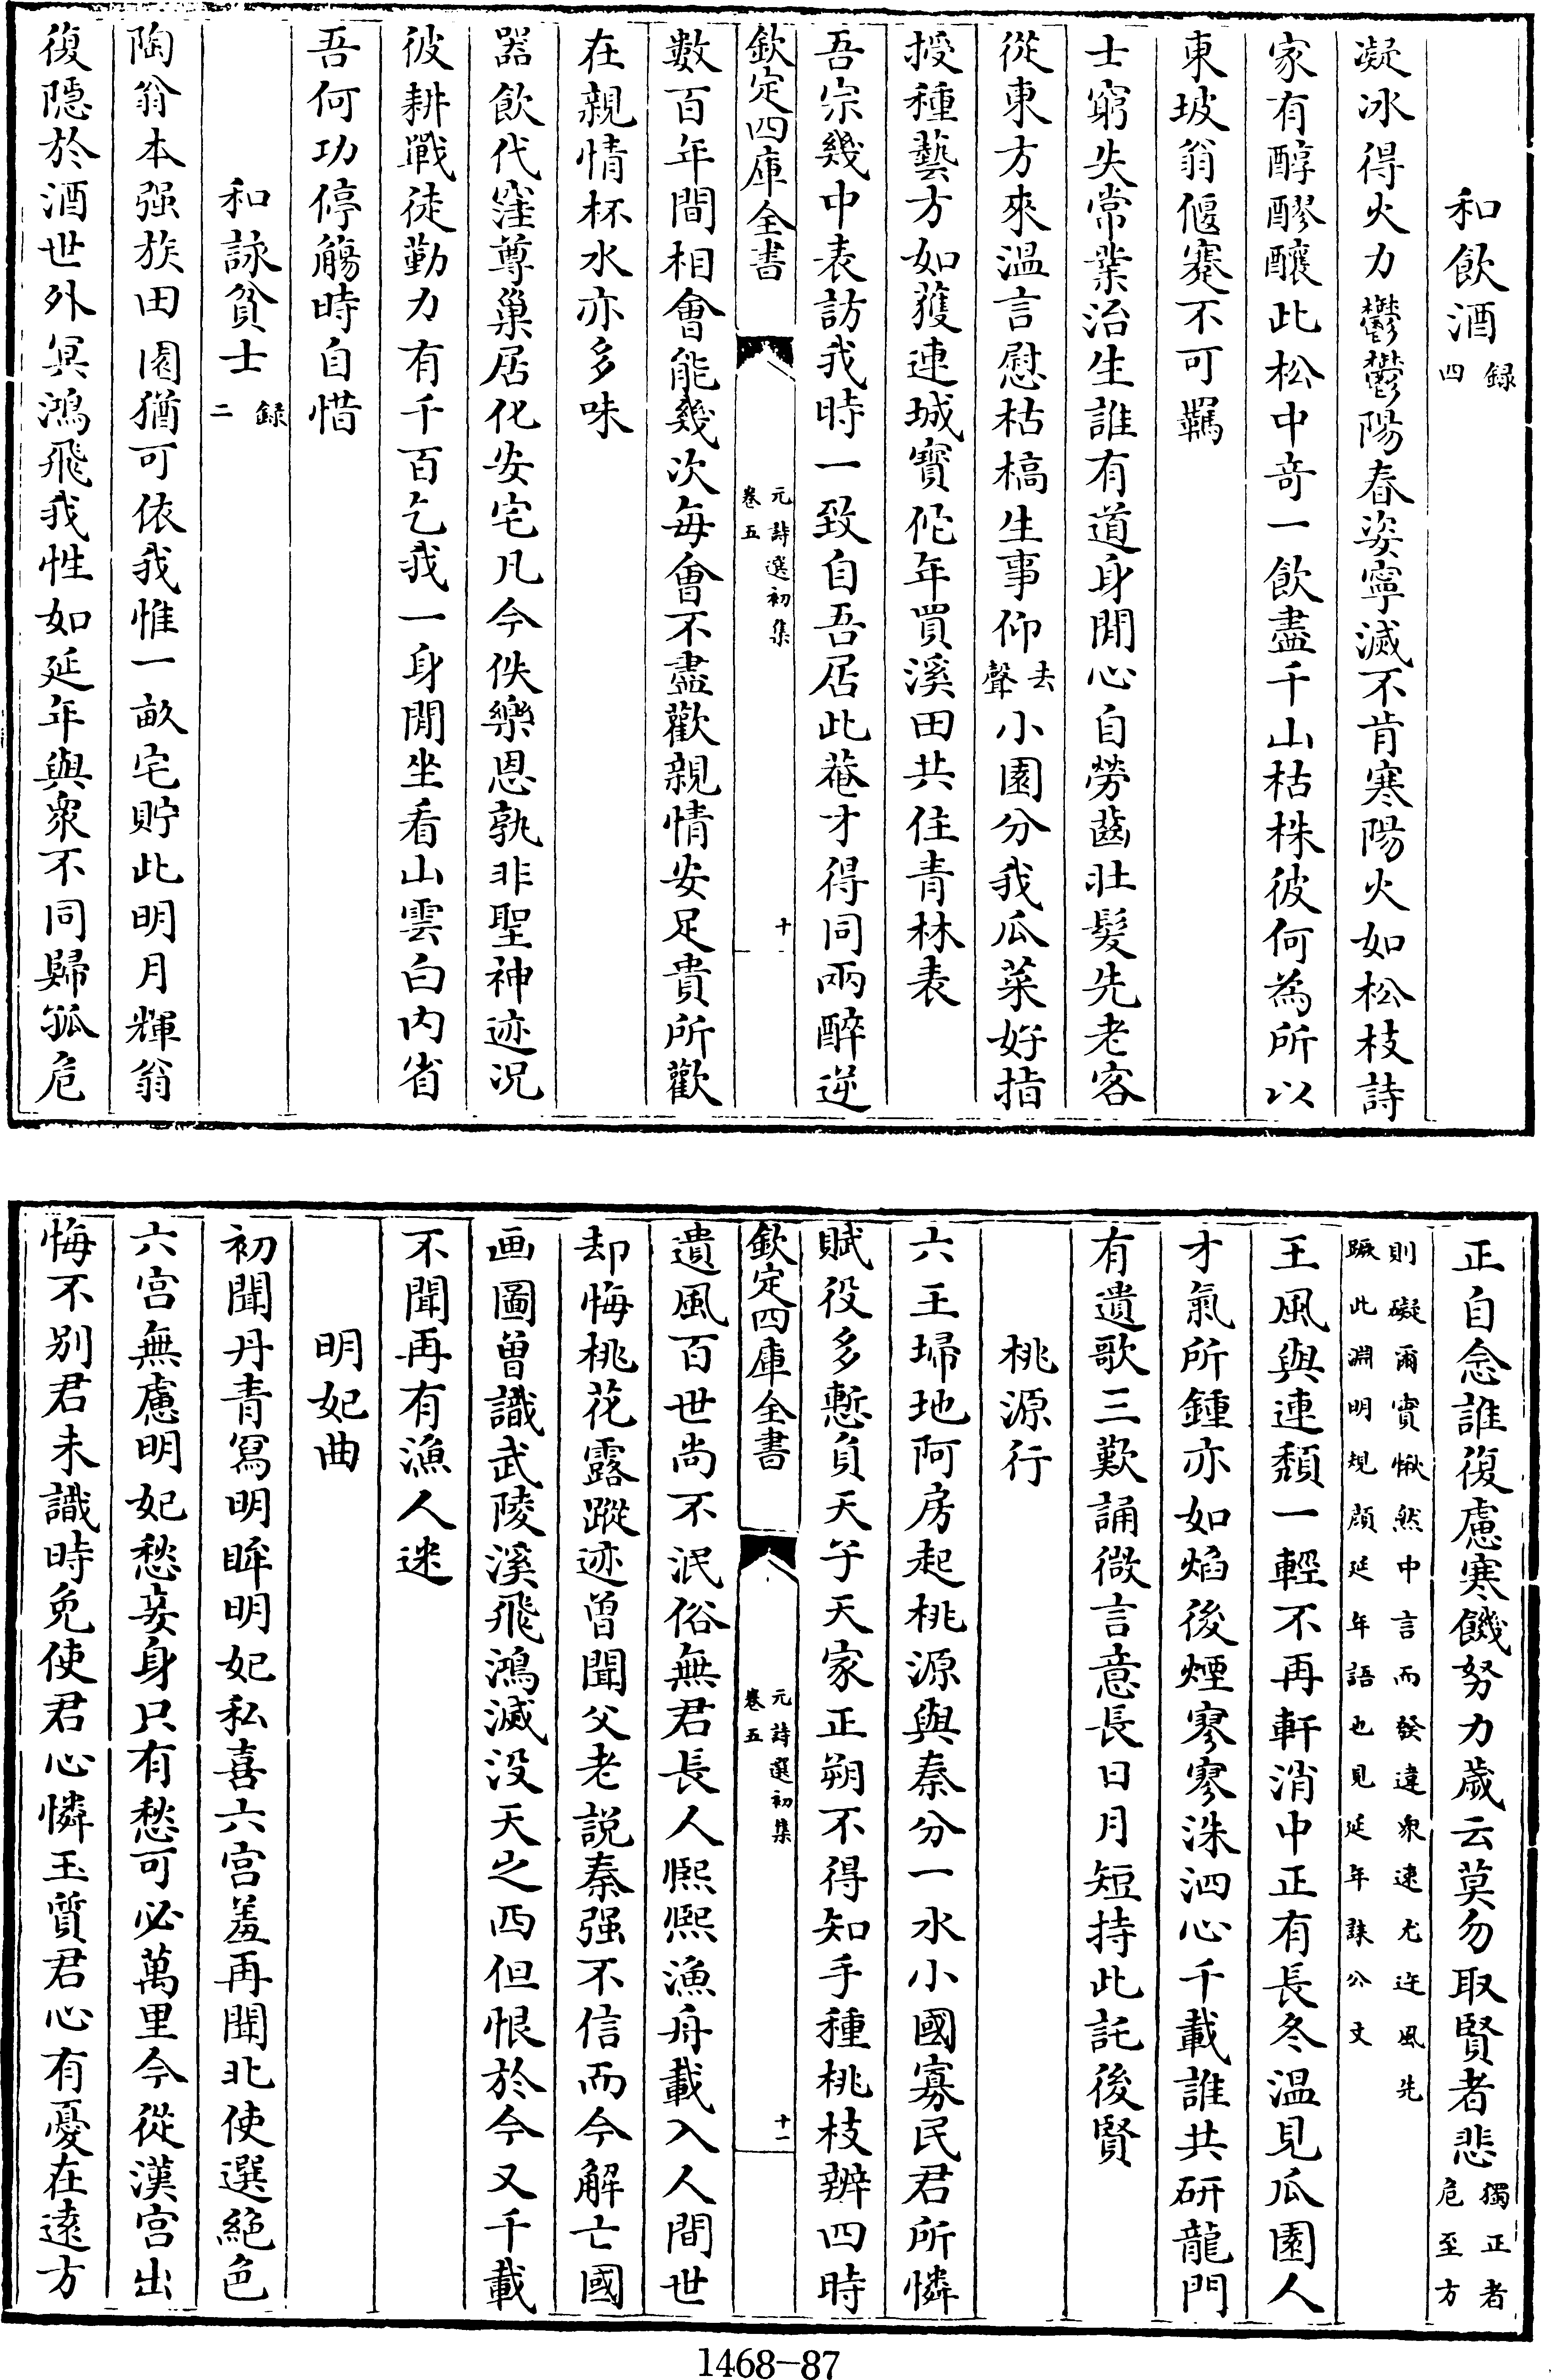 和飲酒錄四
凝冰得火力鬱鬱陽春姿寧滅不肯寒陽火如松枝詩
家有醇醪釀此松中奇一飲盡千山枯株彼何為所以
東坡翁偃蹇不可羈
士窮失常業治生誰有道身閒心自勞齒壯髮先老客
從東方來溫言慰枯槁生事仰去聲小園分我瓜菜好指
授種藝方如獲連城寶佗年買溪田共住青林表
吾宗幾中表訪我時一致自吾居此菴才得同兩醉逆
欽定四庫全書
元詩選初集
卷五
十一
數百年間相會能幾次每會不盡歡親情安足貴所歡
在親情杯水亦多味
器飲代窪尊巢居化安宅凡今佚樂恩孰非聖神迹况
彼耕戰徒勤力有千百乞我一身閒坐看山雲白內省
吾何功停觴時自惜
和詠貧士錄二
陶翁本强族田園猶可依我惟一畝宅貯此明月輝翁
復隱於酒世外冥鴻飛我性如延年與衆不同歸孤危
正自念誰復慮寒饑努力歲云莫勿取賢者悲獨正者危至方
則礙爾實愀然中言而發違衆速尤迕風先
蹶此淵明規顏延年語也見延年誄公文
王風與連頽一輕不再軒消中正有長冬溫見瓜園人
才氣所鍾亦如焰後煙寥寥洙泗心千載誰共研龍門
有遺歌三歎誦微言意長日月短持此託後賢
桃源行
六王掃地阿房起桃源與秦分一水小國寡民君所憐
賦役多慙負天子天家正朔不得知手種桃枝辨四時
欽定四庫全書
元詩選初集
卷五
十一
遺風百世尚不泯俗無君長人熙熙漁舟載入人間世
却悔桃花露蹤迹曾聞父老說秦强不信而今解亡國
画圖曾識武陵溪飛鴻滅没天之西但恨於今又千載
不聞再有漁人迷
明妃曲
初聞丹青寫明眸明妃私喜六宮羞再聞北使選絕色
六宮無慮明妃愁妾身只有愁可必萬里今從漢宮出
悔不别君未識時免使君心憐玉質君心有憂在遠方
1468-87